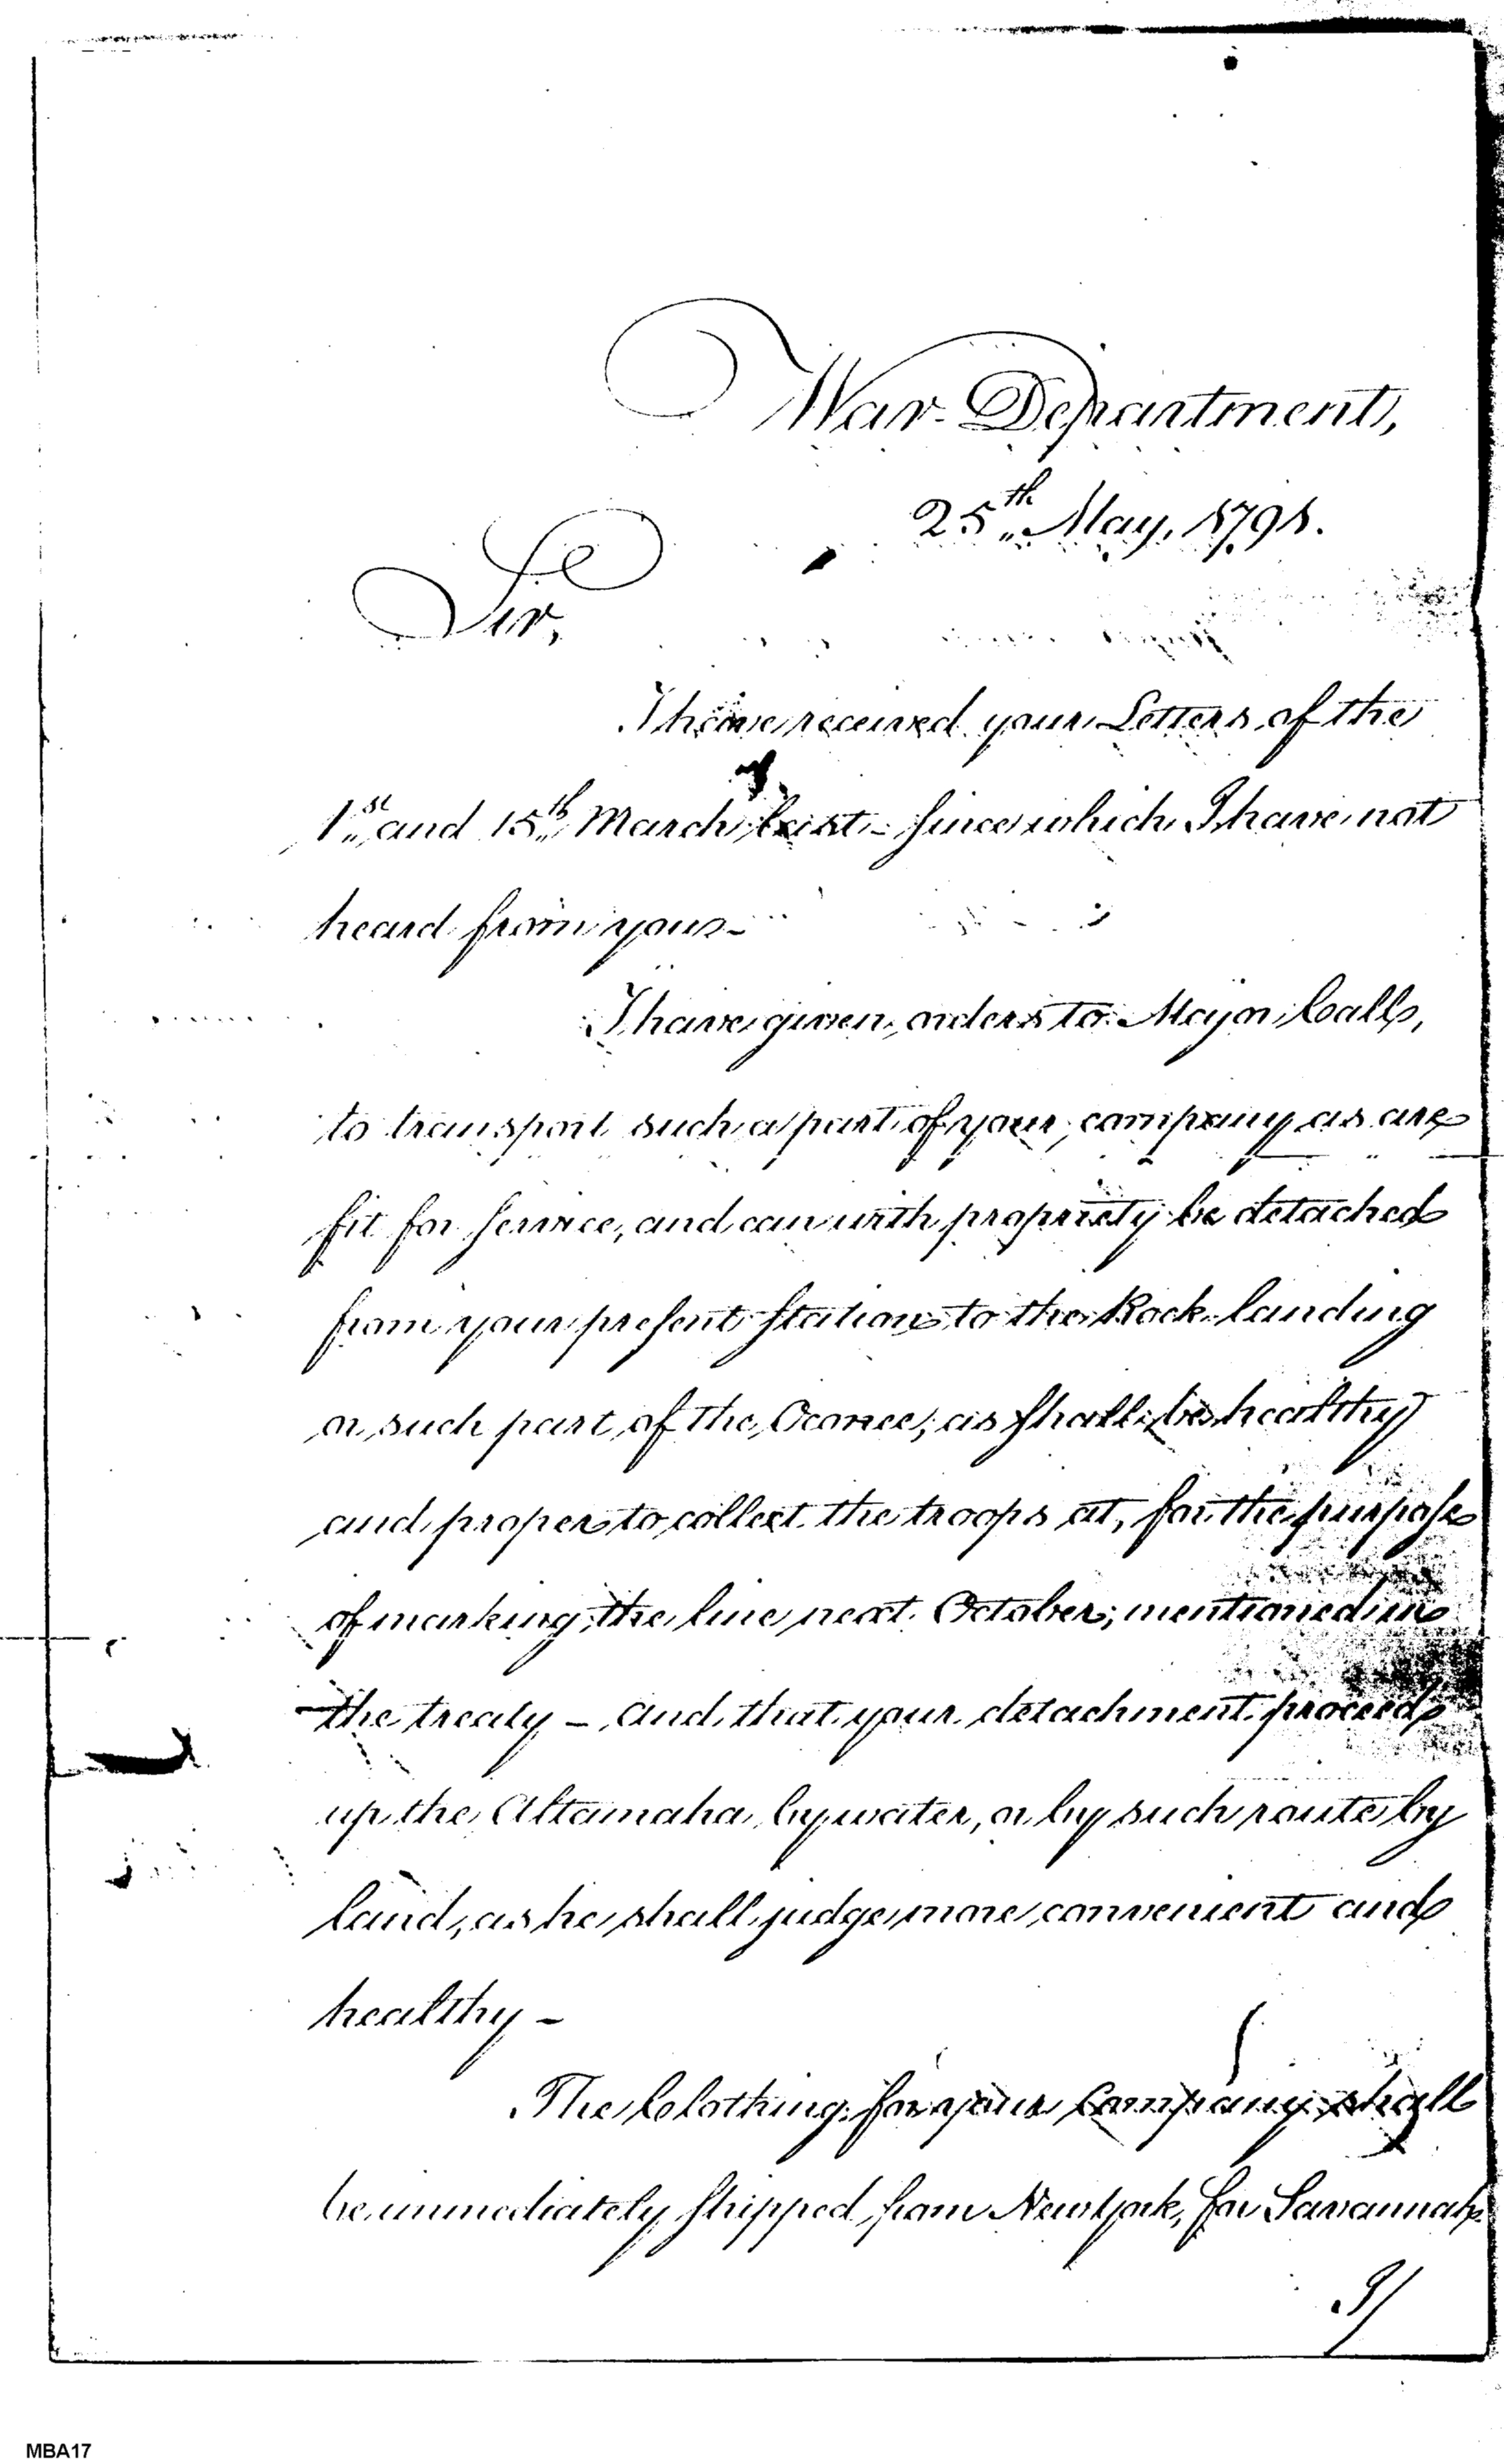 War Department,
25th May, 1791.
Sir,
I have received your Letters of the
1st and 15th March last – since which I have not
heard from you –
I have given orders to Major Call,
to transport such a part of your company as are
fit for service, and can with propriety be detached
from your present station to the Rock landing
or such part of the Oconee, as shall be healthy
and proper to collect the troops at, for the purpose
of marking the line next October; mentioned in
the treaty – and that your detachment proceed
up the Altamaha by water, or by such route by
land, as he shall judge more convenient and
healthy –
The Clothing for your Company shall
be immediately shipped from New York, for Savannah
I/
MBA17